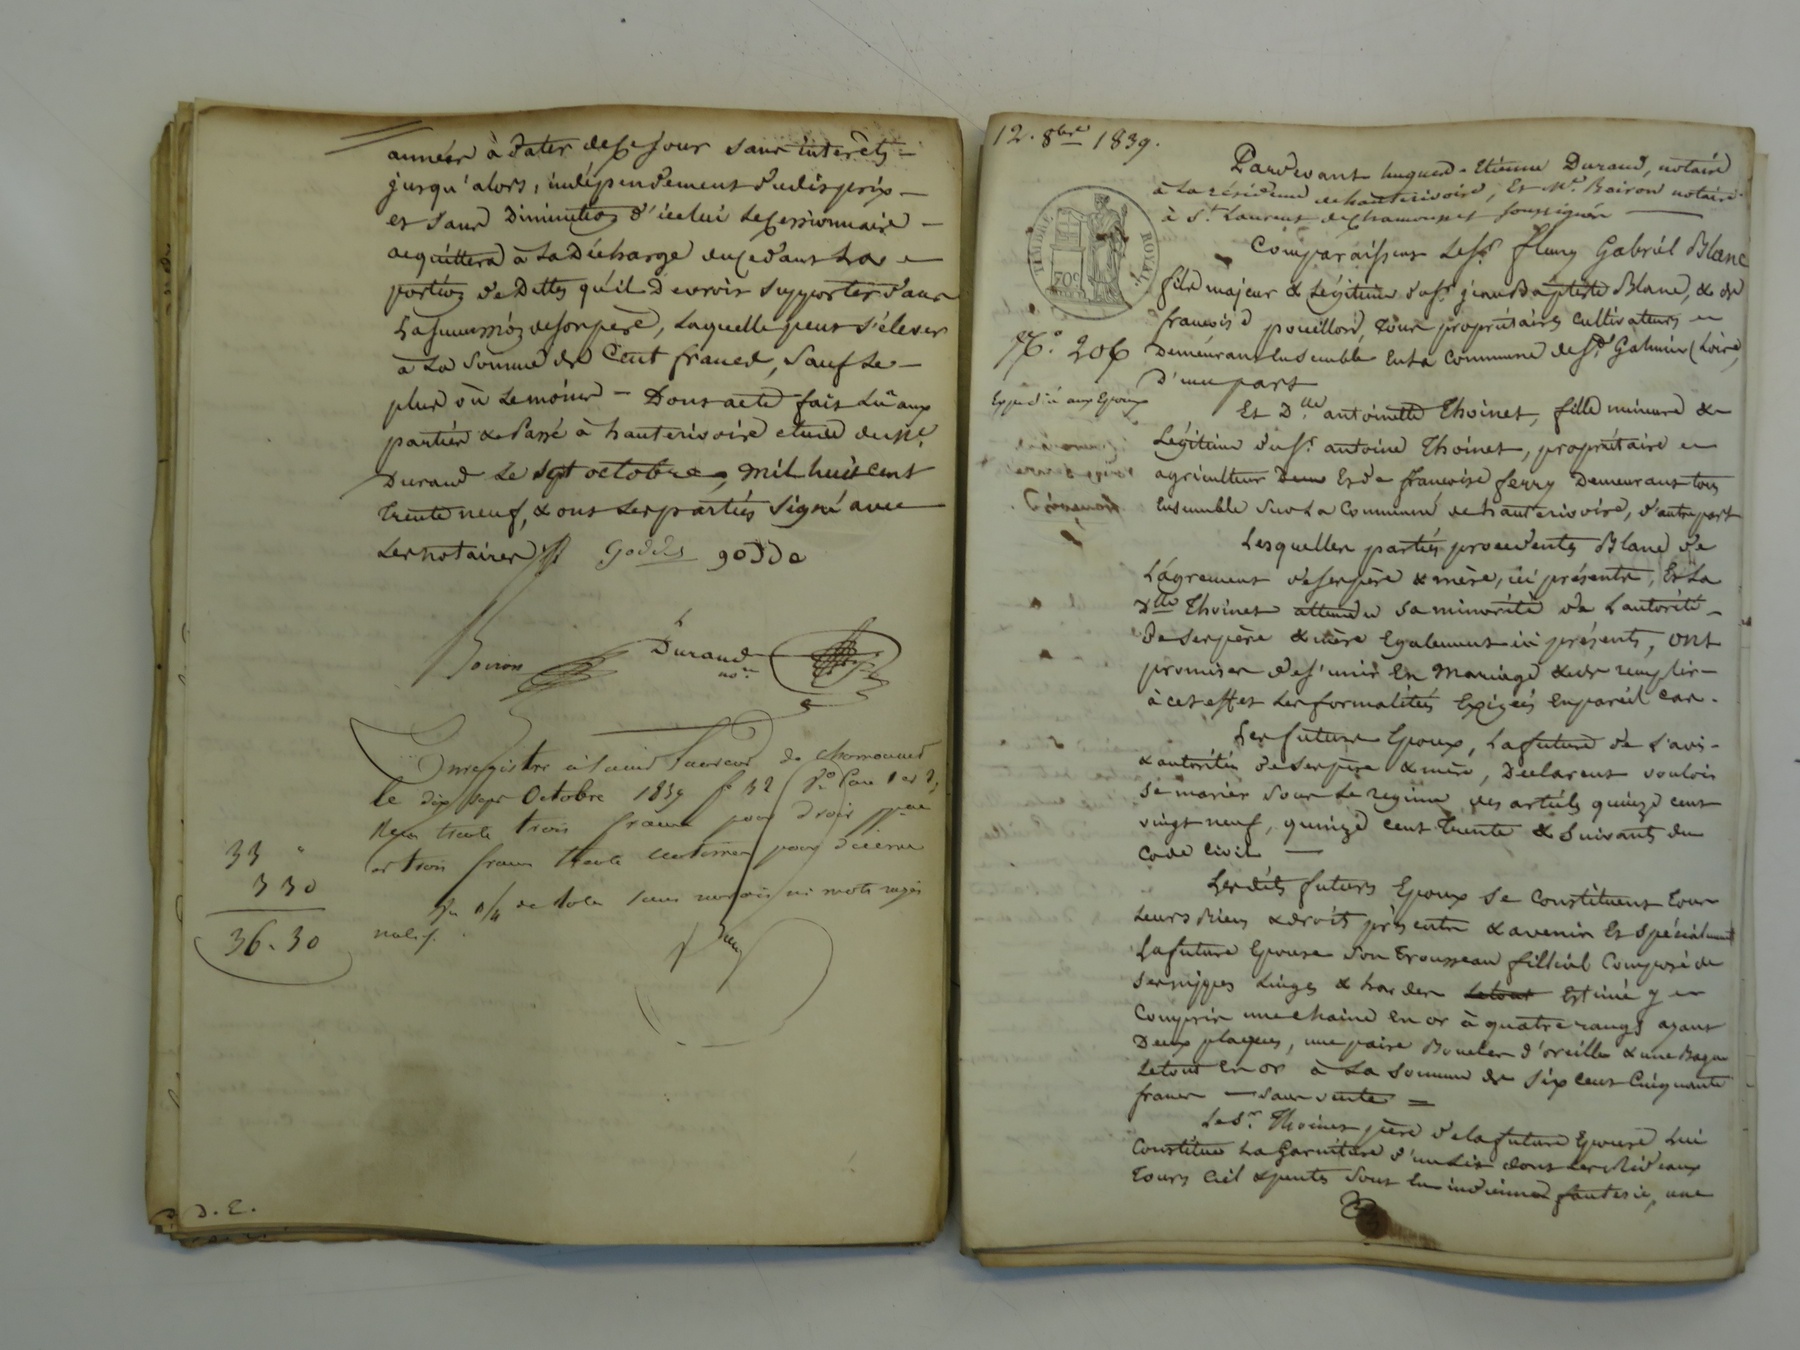 années à dater de ce jour sans intérêts
jusqu'alors, indépendemment du dis prix
et sans Diminution d'icelui le Cessionnaire
acquittera à la Décharge du cédant la
portion de Dettes qu'il Devroit supporter dans
la succession de son père, laquelle peut s'élever
à la somme de Cent francs, sauf le
plus ou le moins - Dont acte fait lu aux
parties & Passé à hauterivoire etude de Me.
Durand le sept octobre, mil huit cent
trente neuf, & ont les parties signé avec
les notaires
Godde godde
Boiron Durand
no.re
Enregistré à Saint Laurent de chamousset
le dix sept Octobre 1839 f° 32 Ro. Case 1 et 2,
Reçu trente trois francs pour droit
et trois francs trente centimes pour décime
33 "
3 30
36.30
sans renvois ni mots rayés
nuls.
D. E.
12. 8bre 1839.
Pardevant hugues-Etienne Durand, notaire
à la résidence de hauterivoire, Et Me. Boiron notaire
à St. Laurent de Chamousset soussignés
TIMBRE ROYAL
70c
Comparaissent le Sr. fleury Gabriel Blanc
fils majeur & Légitime du Sr. jean Baptiste Blanc, & de
francoise pouillord, tous propriétaires cultivateurs
No. 206
Demeurant Ensemble En la Commune de St. Galmier (Loire)
D'une part
Expédié aux Epoux
Et Dlle antoinette Thoinet, fille mineure &
Légitime du Sr. antoine Thoinet, propriétaire
agriculteur Et de francoise ferry Demeurant tous
Ensemble Sur la Commune de hauterivoire, d'autre part
Lesquelles parties procédents Blanc de
L'agrement de ses père & mère, ici présents, Et la
Dlle Thoinet attendu sa minorité de L'autorité
De ses père & mère Egalement ici présents, ont
promis de s'unir En Mariage & de remplir
à cet effet les formalités Exigées En pareil Cas.
Les futurs Epoux, La future de L'avis
& autorité de ses père & mère, Déclarent vouloir
se marier sous le regime des articles quinze cent
vingt neuf, quinze cent trente & Suivants du
Code civil
Lesdits futurs Epoux se Constituent tous
Leurs Biens & droits présents & avenir Et spécialement
La future Epouse son trousseau filliol Composé de
ses nippes Linges & hardes Le tout Estimé y
Compris une chaine En or à quatre rangs ayant
Deux plaques, une paire Boucles d'oreilles & une Bague
Le tout En or à La somme de six cent Cinquante
francs - sans vente =
Le Sr. Thoinet père de la future Epouse Lui
Constitue La Garniture d'un Lit dont les Rideaux
tours Ciel & pentes sont En indienne fantesie, une